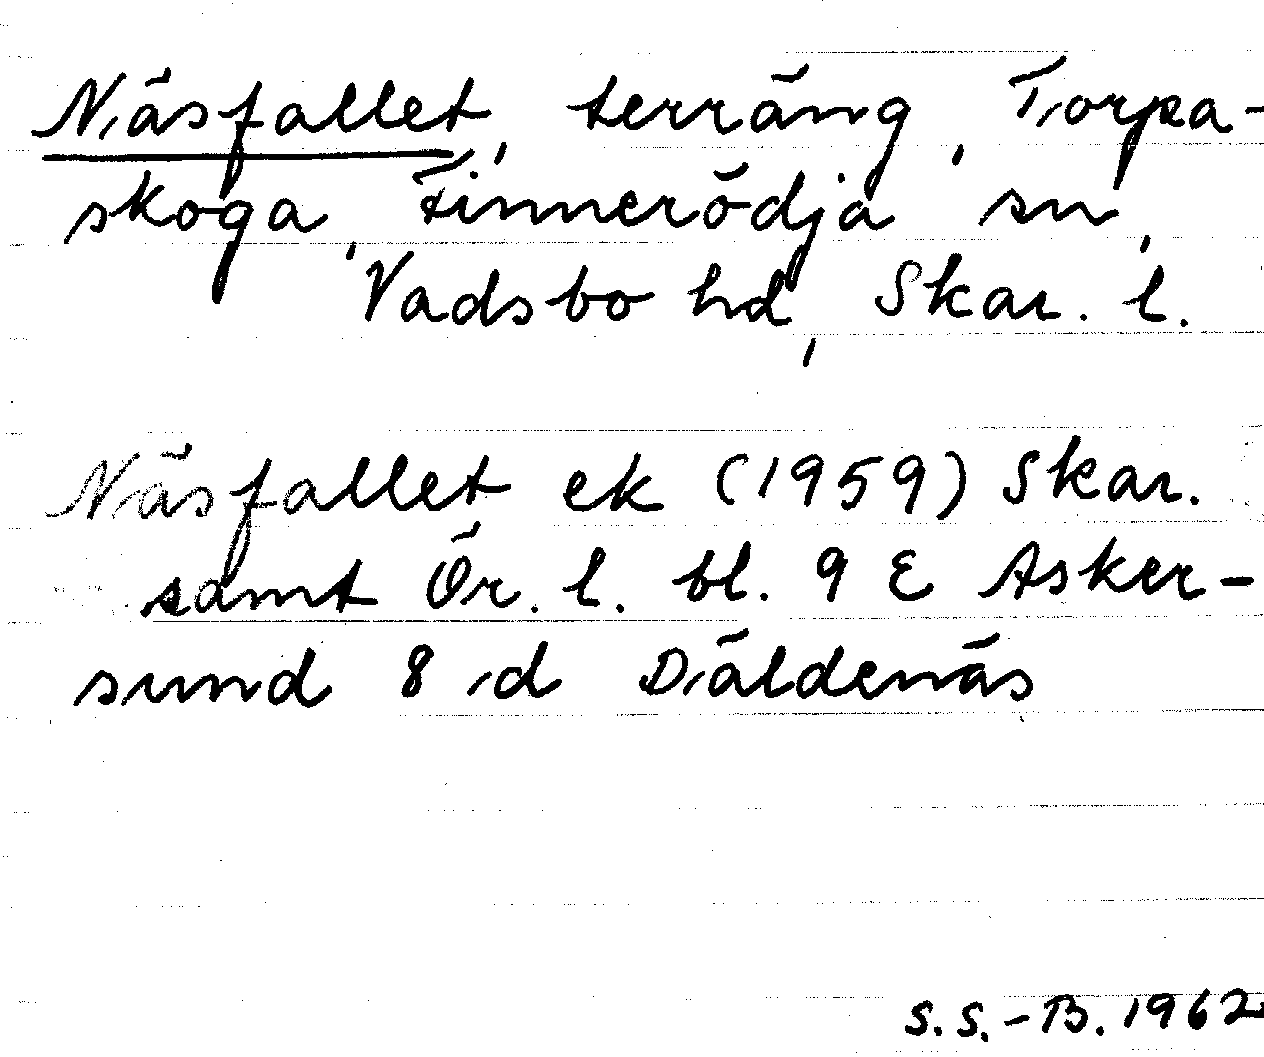 Näsfallet, terräng, Torpa-
skoga, Finnerödja sn,
Vadsbo hd, Skar. l.
Näsfallet ek (1959) Skar.
samt Ör. l. bl. 9 E Asker-
sund 8 d Däldenäs
S. S.-B. 1962